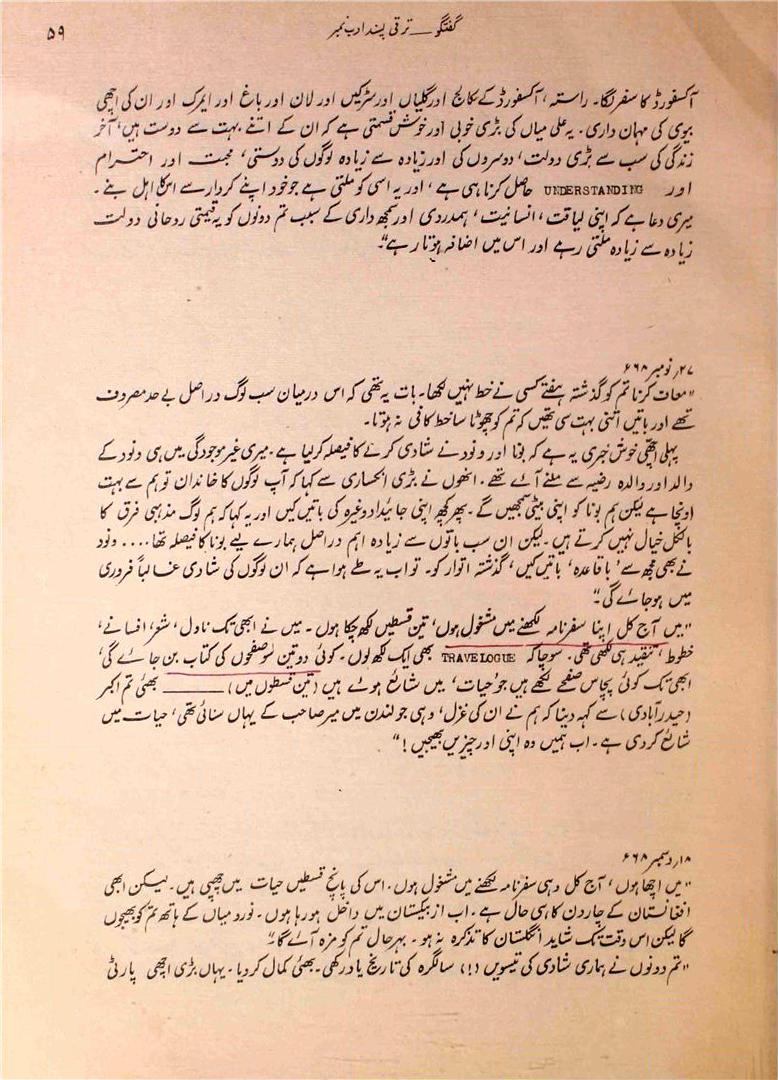 گفتگو — ترقی پسند ادب نمبر
۵۹
آکسفورڈ کا سفر لگا۔ راستہ، آکسفورڈ کے کالج اور گلیاں اور سڑکیں اور لان اور باغ اور ایمرک اور ان کی اچھی
بیوی کی مہان داری۔ یہ علی میاں کی بڑی خوبی اور خوش قسمتی ہے کہ ان کے اتنے بہت سے دوست ہیں، آخر
زندگی کی سب سے بڑی دولت، دوسروں کی اور زیادہ سے زیادہ لوگوں کی دوستی، محبت اور احترام
اور UNDERSTANDING حاصل کرنا ہی ہے، اور یہ اسی کو ملتی ہے جو خود اپنے کردار سے اس کا اہل بنے۔
میری دعا ہے کہ اپنی لیاقت، انسانیت، ہمدردی اور سمجھ داری کے سبب تم دونوں کو یہ قیمتی روحانی دولت
زیادہ سے زیادہ ملتی رہے اور اس میں اضافہ ہوتا رہے"۔
۲۷؍ نومبر ۶۸ء
"معاف کرنا تم کو گذشتہ ہفتے کسی نے خط نہیں لکھا۔ بات یہ تھی کہ اس درمیان سب لوگ دراصل بے حد مصروف
تھے اور باتیں اتنی بہت سی تھیں کہ تم کو چھوٹا سا خط کافی نہ ہوتا۔
پہلی اچھی خوش خبری یہ ہے کہ بونا اور ونود نے شادی کرنے کا فیصلہ کر لیا ہے۔ میری غیر موجودگی میں ہی ونود کے
والد اور والدہ رضیہ سے ملنے آئے تھے۔ انھوں نے بڑی انکساری سے کہا کہ آپ لوگوں کا خاندان تو ہم سے بہت
اونچا ہے لیکن ہم بونا کو اپنی بیٹی سمجھیں گے۔ پھر کچھ اپنی جائیداد وغیرہ کی باتیں کیں اور یہ کہا کہ ہم لوگ مذہبی فرق کا
بالکل خیال نہیں کرتے ہیں۔ لیکن ان سب باتوں سے زیادہ اہم دراصل ہمارے لیے بونا کا فیصلہ تھا.... ونود
نے بھی مجھ سے 'باقاعدہ' باتیں کیں، گذشتہ اتوار کو۔ تو اب یہ طے ہوا ہے کہ ان لوگوں کی شادی غالباً فروری
میں ہو جائے گی۔"
"میں آج کل اپنا سفرنامہ لکھنے میں مشغول ہوں، تین قسطیں لکھ چکا ہوں۔ میں نے ابھی تک ناول، شعر، افسانے،
خطوط، تنقید ہی لکھی تھی۔ سوچا کہ TRAVELOGUE بھی ایک لکھ لوں۔ کوئی دو تین سو صفحوں کی کتاب بن جائے گی،
ابھی تک کوئی پچاس صفحے لکھے ہیں جو 'حیات' میں شائع ہوئے ہیں (تین قسطوں میں) ——— بھئی تم اکبر
(حیدرآبادی) سے کہہ دینا کہ ہم نے ان کی غزل، وہی جو لندن میں میر صاحب کے یہاں سنائی تھی، حیات میں
شائع کر دی ہے۔ اب ہمیں وہ اپنی اور چیزیں بھیجیں!"
۱۸؍ دسمبر ۶۸ء
"میں اچھا ہوں، آج کل وہی سفرنامہ لکھنے میں مشغول ہوں۔ اس کی پانچ قسطیں حیات میں چھپی ہیں۔ لیکن ابھی
افغانستان کے چار دن کا ہی حال ہے۔ اب ازبکستان میں داخل ہو رہا ہوں۔ نورد میاں کے ہاتھ تم کو بھیجوں
گا لیکن اس وقت تک شاید انگلستان کا تذکرہ نہ ہو۔ بہرحال تم کو مزہ آئے گا۔"
"تم دونوں نے ہماری شادی کی تیسویں (!) سالگرہ کی تاریخ یاد رکھی۔ بھئی کمال کر دیا۔ یہاں بڑی اچھی پارٹی